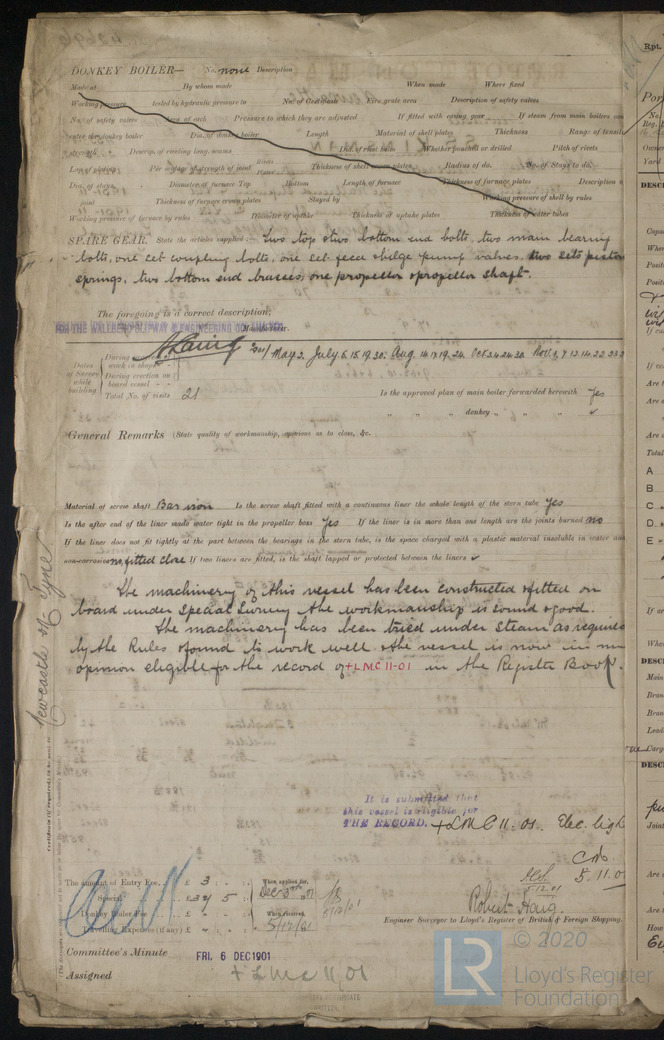 DONKEY BOILER— No. none Description
Made at By whom made When made Where fixed
Working pressure tested by hydraulic pressure to No. of Certificate Fire grate area Description of safety valves
No. of safety valves Area of each Pressure to which they are adjusted If fitted with easing gear If steam from main boilers can
enter the donkey boiler Dia. of donkey boiler Length Material of shell plates Thickness Range of tensile
strength Descrip. of riveting long. seams Dia. of rivet holes Whether punched or drilled Pitch of rivets
Lap of plating Per centage of strength of joint Rivets Plates Thickness of shell crown plates Radius of do. No. of Stays to do.
Dia. of stays Diameter of furnace Top Bottom Length of furnace Thickness of furnace plates Description of
joint Thickness of furnace crown plates Stayed by Working pressure of shell by rules
Working pressure of furnace by rules Diameter of uptake Thickness of uptake plates Thickness of water tubes
SPARE GEAR. State the articles supplied:— Two top & two bottom end bolts, two main bearing
bolts, one set coupling bolts, one set feed & bilge pump valves, two sets piston
springs, two bottom end brasses, one propeller & propeller shaft.
The foregoing is a correct description,
FOR THE WALLSEND SLIPWAY & ENGINEERING CO. LIMITED Manufacturer.
Dates of Survey while building
During progress of work in shops
During erection on board vessel
Total No. of visits 21
1901 May 2. July 6. 15. 19. 30. Aug. 14. 17. 19. 24. Oct. 3. 4. 24. 30. Nov. 1, 7. 12. 14. 22. 23
Is the approved plan of main boiler forwarded herewith Yes
" " " donkey " " "
General Remarks (State quality of workmanship, opinions as to class, &c.
Material of screw shaft Bar iron Is the screw shaft fitted with a continuous liner the whole length of the stern tube Yes
Is the after end of the liner made water tight in the propeller boss Yes If the liner is in more than one length are the joints burned no
If the liner does not fit tightly at the part between the bearings in the stern tube, is the space charged with a plastic material insoluble in water and
non-corrosive no, fitted close If two liners are fitted, is the shaft lapped or protected between the liners ✓
The machinery of this vessel has been constructed & fitted on
board under Special Survey & the workmanship is sound & good.
The machinery has been tried under steam as required
by the Rules & found to work well & the vessel is now in my
opinion eligible for the record of +LMC 11-01 in the Register Book.
Newcastle on Tyne
It is submitted that
this vessel is eligible for
THE RECORD. + LMC 11.01. Elec. light
The amount of Entry Fee £ 3 : - :
Special £ 34 : 5 :
Donkey Boiler Fee £ - : - :
Travelling Expenses (if any) £ - : - :
When applied for,
When received,
5/12/01
Robert Haig.
Engineer Surveyor to Lloyd's Register of British & Foreign Shipping.
Committee's Minute FRI. 6 DEC 1901
Assigned + LMC 11,01
© 2020
LR Lloyd's Register
Foundation